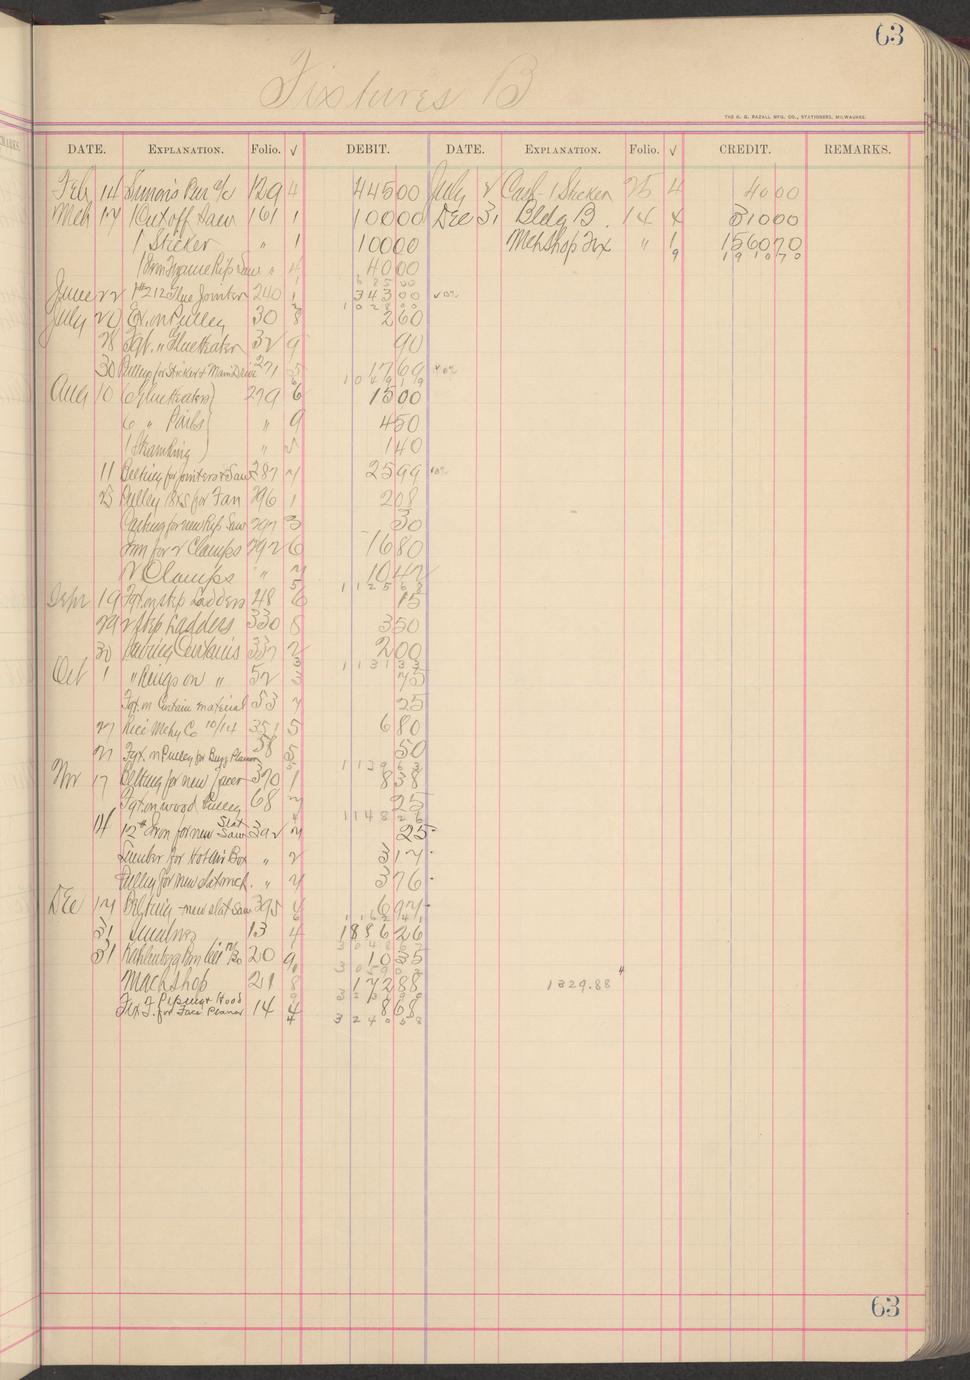 63
Fixtures B
THE H. G. RAZALL MFG. CO., STATIONERS, MILWAUKEE.
DATE. EXPLANATION. Folio. √ DEBIT. DATE. EXPLANATION. Folio. √ CREDIT. REMARKS.
Feb 14 Simon's Pur a/c 129 4 445 00 July 2 Cash - 1 Sticker 25 4 40 00
Mch 17 1 Cut off Saw 161 1 100 00 Dec 31 Bldg B. 14 4 310 00
1 Sticker " 1 100 00 Mch Shop Fix " 1 1560 70
9 1910 70
Frame Rip Saw " 4 40 00
685 00
June 22 1 #212 Glue Jointer 240 1 343 00
1028 00
July 20 Ex. on Pulley 30 8 2 60
28 Fgt. " Glue Heater 32 9 90
30 Pulleys for Sticker & Main Drive 271 5 17 69
6 1049 19
Aug 10 6 Glue Heaters 279 6 15 00
6 " Pails " 9 4 50
1 " 5 1 40
11 Belting for Jointers & Saw 287 7 25 99
25 Pulley for Fan 296 1 2 08
Casting for new Rip Saw 297 3 30
Iron for 2 Clamps 292 6 16 80
2 Clamps " 7 10 42
5 1125 68
Sept 19 Fgt. on Step Ladders 48 6 15
29 2 Step Ladders 330 8 3 50
30 Sewing Curtains 337 2 2 00
3 1131 33
Oct 1 " Rings on " 52 3 75
Fgt. on Curtain material 53 7 25
27 Rice Mchy Co 10/14 351 5 6 80
27 Fgt. on Pulley for Buzz Planer 58 5 50
5 1139 63
Nov 17 Belting for new 370 1 8 38
Fgt. on wood Pulley 68 7 25
4 1148 26
14 12# Iron for new Slat Saw 392 7 25
Lumber for Hot Air Box " 2 3 17
Pulley for new slat mch. " 7 3 76
Dec 17 Belting - new slat saw 395 4 6 97
6 1162 41
31 Sundries 13 4 1886 26
3048 67
31 Kahlenberg Bros 20 9 10 35
3059 02
Mach Shop 21 8 172 88
Fix F. Piping & Hood
Fix F. for Face Planer 14 4 8 68
4 3240 58
1329.88
63